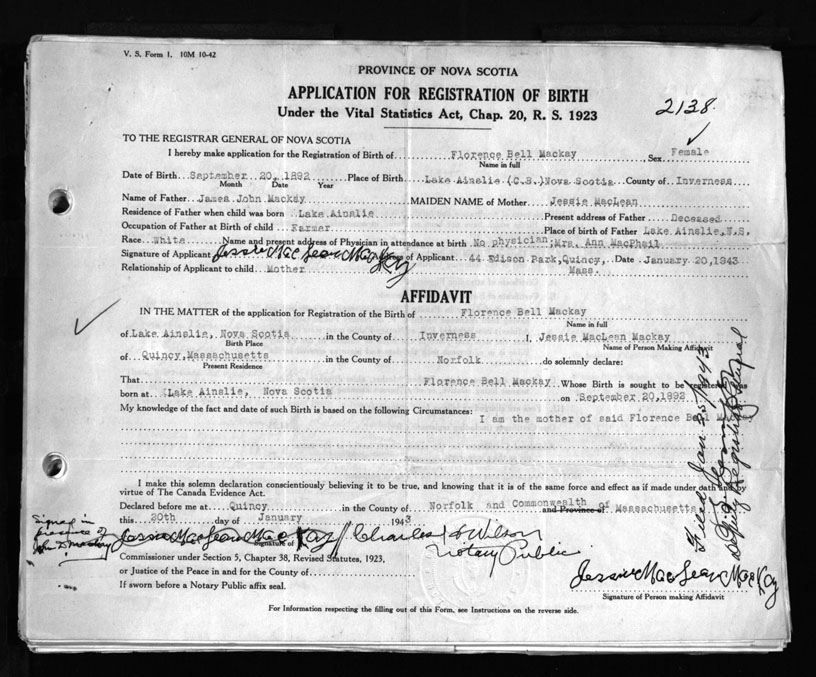 V. S. Form 1. 10M 10-42
PROVINCE OF NOVA SCOTIA
APPLICATION FOR REGISTRATION OF BIRTH
Under the Vital Statistics Act, Chap. 20, R. S. 1923
2138
TO THE REGISTRAR GENERAL OF NOVA SCOTIA
I hereby make application for the Registration of Birth of Florence Bell Mackay Sex Female
Name in full
Date of Birth September 20, 1892 Place of Birth Lake Ainslie (C.B.) Nova Scotia County of Inverness
Month Date Year
Name of Father James John Mackay MAIDEN NAME of Mother Jessie MacLean
Residence of Father when child was born Lake Ainslie Present address of Father Deceased
Occupation of Father at Birth of child Farmer Place of birth of Father Lake Ainslie, N.S.
Race White Name and present address of Physician in attendance at birth No physician, Mrs. Ann MacPhail
Signature of Applicant Jessie MacLean MacKay Address of Applicant 44 Edison Park, Quincy, Date January 20, 1943
Relationship of Applicant to child Mother Mass.
AFFIDAVIT
IN THE MATTER of the application for Registration of the Birth of Florence Bell Mackay
Name in full
of Lake Ainslie, Nova Scotia in the County of Inverness I, Jessie MacLean Mackay
Birth Place Name of Person Making Affidavit
of Quincy, Massachusetts in the County of Norfolk do solemnly declare:
Present Residence
That Florence Bell Mackay Whose Birth is sought to be registered was
born at Lake Ainslie, Nova Scotia on September 20, 1892
My knowledge of the fact and date of such Birth is based on the following Circumstances:
I am the mother of said Florence Bell Mackay
I make this solemn declaration conscientiously believing it to be true, and knowing that it is of the same force and effect as if made under oath and by
virtue of The Canada Evidence Act.
Declared before me at Quincy in the County of Norfolk and Commonwealth of
and Province of Massachusetts
this 20th day of January 1943
Signed in
presence of
Jessie MacLean MacKay Charles Wilson
Signature of
Notary Public
Commissioner under Section 5, Chapter 38, Revised Statutes, 1923,
or Justice of the Peace in and for the County of
If sworn before a Notary Public affix seal.
Jessie MacLean MacKay
Signature of Person making Affidavit
For Information respecting the filling out of this Form, see Instructions on the reverse side.
Filed Jan 25/1943
Deputy Registrar General